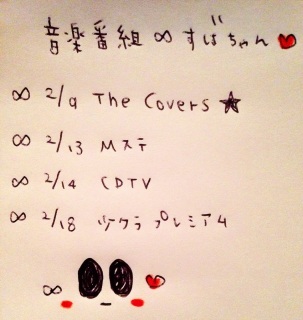 音楽番組 ∞ すばちゃん ♥
∞ 2/9 The Covers ★
∞ 2/13 Mステ
∞ 2/14 CDTV
∞ 2/18 ツタラプレミアム
∞